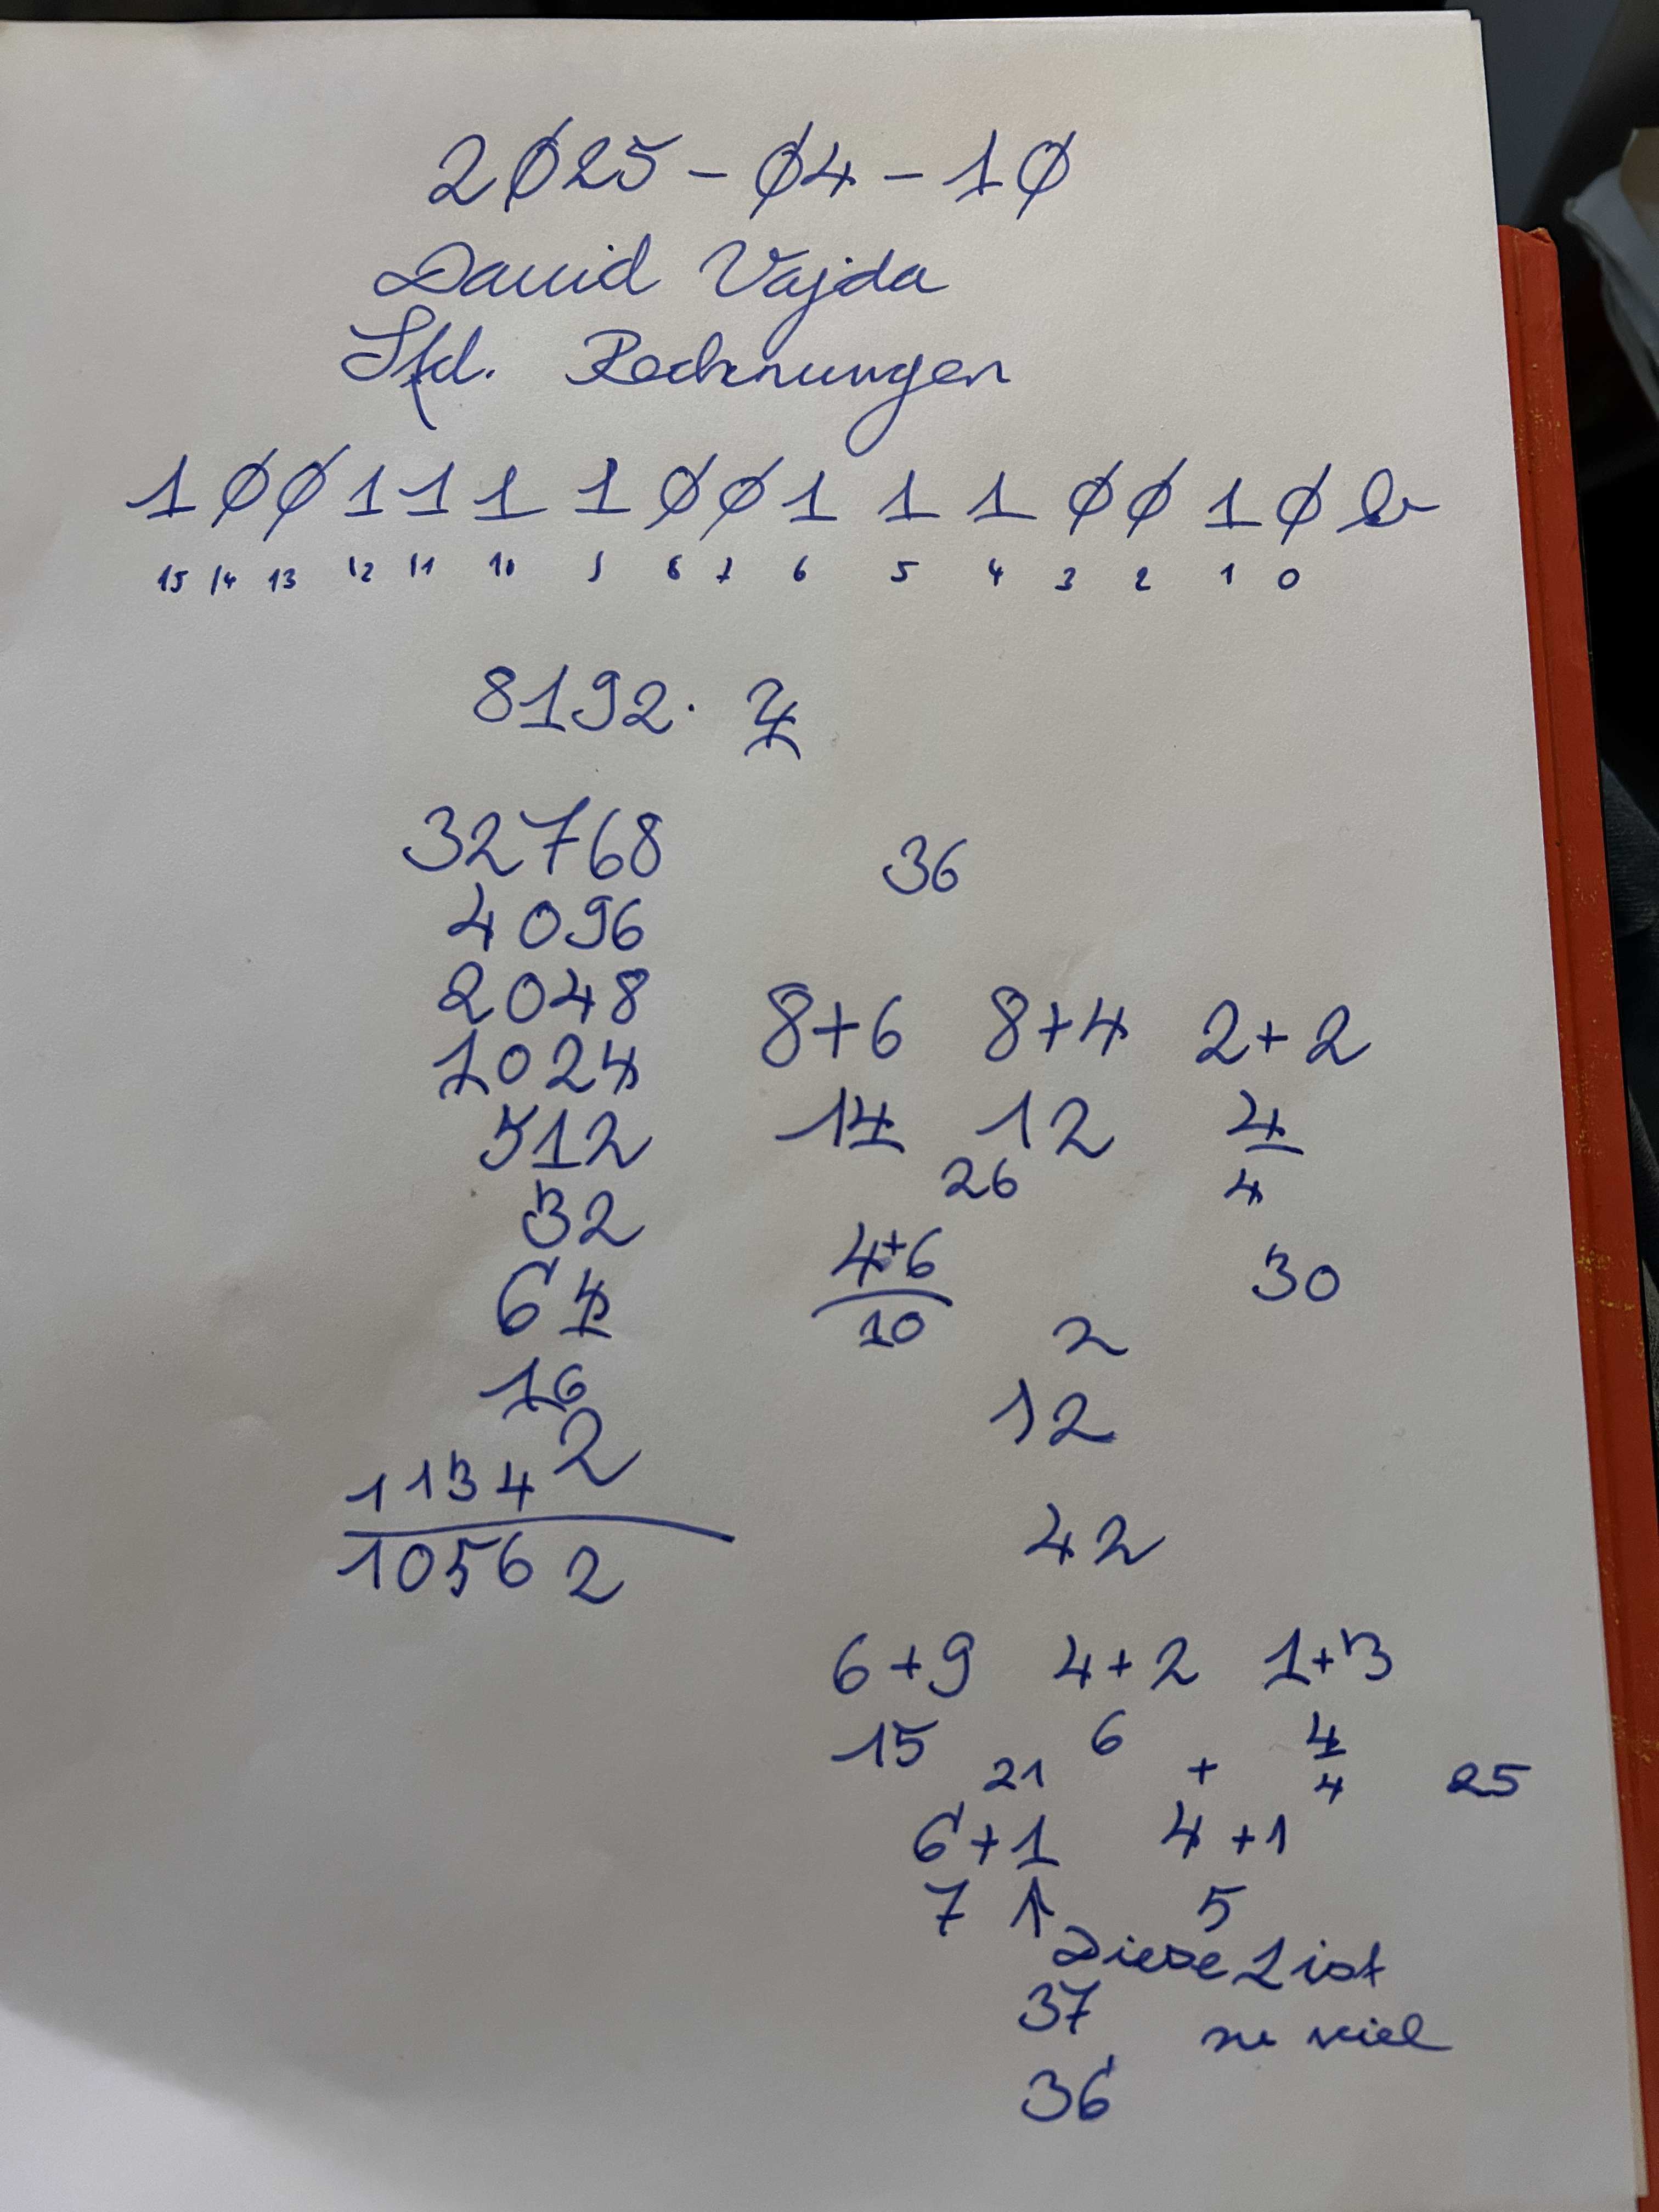 2025-04-10
David Vajda
Lfd. Rechnungen
1001111001110010b
15 14 13 12 11 10 9 8 7 6 5 4 3 2 1 0
8192 · 4
32768 36
4096
2048 8+6 8+4 2+2
1024
512 14 12 4
26 4
32 4+6 30
64 10 2
16 12
2
1134
42
10562
6+9 4+2 1+3
15 6 4
21 + 4 25
6+1 4+1
7 ↑ 5
Diese 1 ist
37 zu viel
36